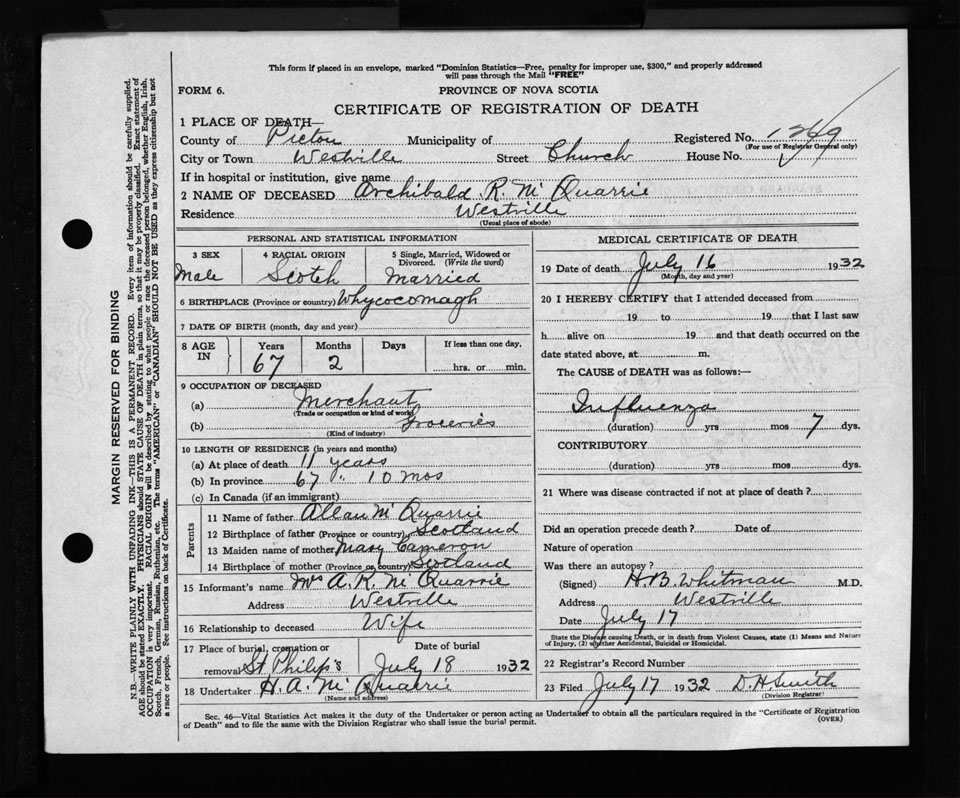 This form if placed in an envelope, marked "Dominion Statistics—Free, penalty for improper use, $300," and properly addressed
will pass through the Mail "FREE"
FORM 6.
PROVINCE OF NOVA SCOTIA
CERTIFICATE OF REGISTRATION OF DEATH
1 PLACE OF DEATH—
County of Pictou Municipality of Registered No. 1249
(For use of Registrar General only)
City or Town Westville Street Church House No.
If in hospital or institution, give name
2 NAME OF DECEASED Archibald R. Mc Quarrie
Residence Westville
(Usual place of abode)
PERSONAL AND STATISTICAL INFORMATION
3 SEX 4 RACIAL ORIGIN 5 Single, Married, Widowed or
Divorced. (Write the word)
Male Scotch Married
6 BIRTHPLACE (Province or country) Whycocomagh
7 DATE OF BIRTH (month, day and year)
8 AGE IN Years Months Days If less than one day,
67 2 hrs. or min.
9 OCCUPATION OF DECEASED
(a) Merchant
(Trade or occupation or kind of work)
(b) Groceries
(Kind of industry)
10 LENGTH OF RESIDENCE (in years and months)
(a) At place of death 11 years
(b) In province 67 " 10 mos
(c) In Canada (if an immigrant)
Parents
11 Name of father Allan Mc Quarrie
12 Birthplace of father (Province or country) Scotland
13 Maiden name of mother Mary Cameron
14 Birthplace of mother (Province or country) Scotland
15 Informant's name Mrs A. R. Mc Quarrie
Address Westville
16 Relationship to deceased Wife
17 Place of burial, cremation or Date of burial
removal St Philip's July 18 1932
18 Undertaker H. A. Mc Quarrie
(Name and address)
MEDICAL CERTIFICATE OF DEATH
19 Date of death July 16 1932
(Month, day and year)
20 I HEREBY CERTIFY that I attended deceased from
19 to 19 that I last saw
h alive on 19 and that death occurred on the
date stated above, at m.
The CAUSE of DEATH was as follows:—
Influenza
(duration) yrs mos 7 dys.
CONTRIBUTORY
(duration) yrs mos dys.
21 Where was disease contracted if not at place of death?
Did an operation precede death? Date of
Nature of operation
Was there an autopsy?
(Signed) H. B. Whitman M.D.
Address Westville
Date July 17
State the Disease causing Death, or in death from Violent Causes, state (1) Means and Nature
of Injury, (2) whether Accidental, Suicidal or Homicidal.
22 Registrar's Record Number
23 Filed July 17 1932 D. H. Smith
(Division Registrar)
Sec. 46—Vital Statistics Act makes it the duty of the Undertaker or person acting as Undertaker to obtain all the particulars required in the "Certificate of Registration
of Death" and to file the same with the Division Registrar who shall issue the burial permit. (OVER)
MARGIN RESERVED FOR BINDING
N.B.—WRITE PLAINLY WITH UNFADING INK—THIS IS A PERMANENT RECORD. Every item of information should be carefully supplied.
AGE should be stated EXACTLY. PHYSICIANS should STATE CAUSE OF DEATH in plain terms, so that it may be properly classified. Exact statement of
OCCUPATION is very important. RACIAL ORIGIN will be described by stating to what people or race the deceased person belonged, whether English, Irish,
Scotch, French, German, Russian, Ruthenian, etc. The terms "AMERICAN" or "CANADIAN" SHOULD NOT BE USED as they express citizenship but not
a race or people. See instructions on back of Certificate.